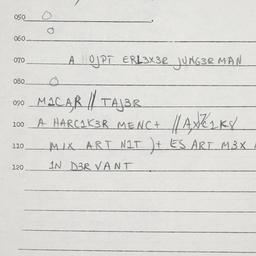 050 O
O
060
070 A OJPT ERL3X3R JUNG3R MAN
080 O
090 M1CA,R // TAJ3R
100 A HARC1K3R MENC+ //
110 MIX ART N1T )+ ES ART M3X
120 IN D3R VANT